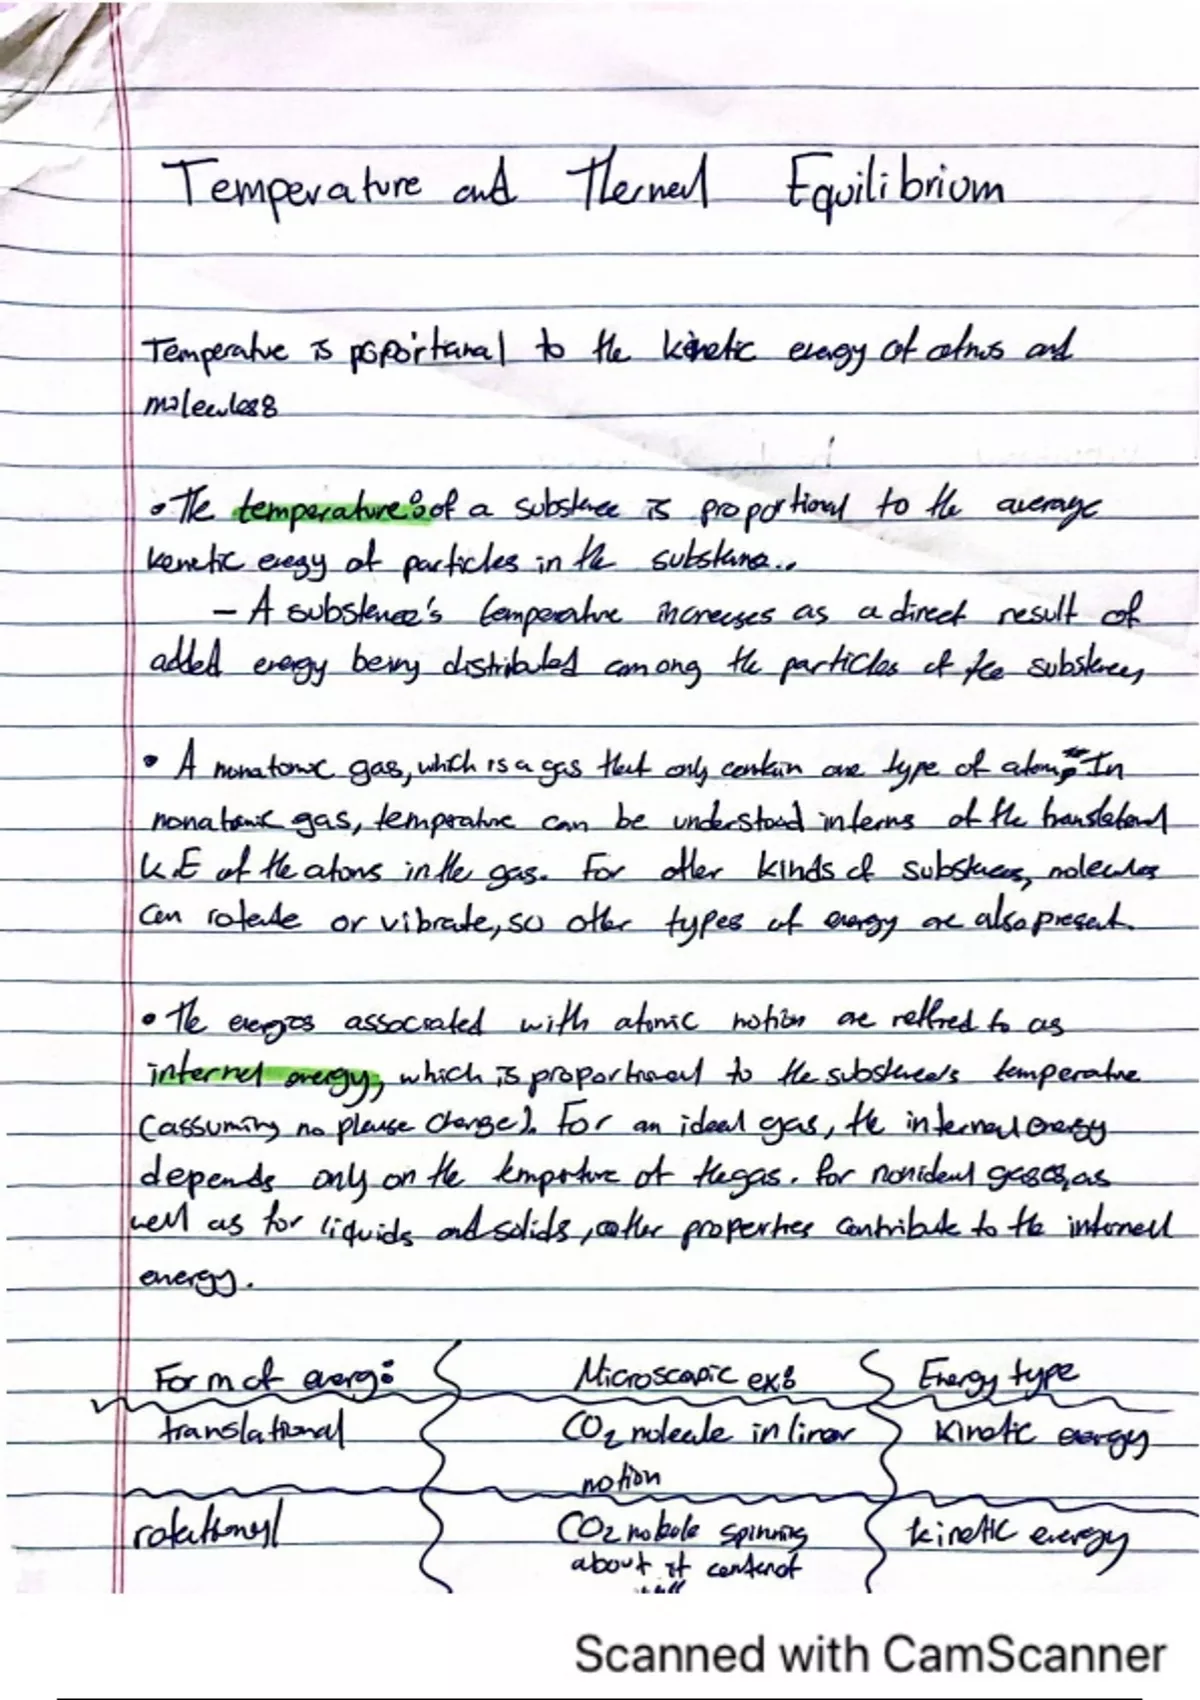 Temperature and Thermal Equilibrium
Temperature is poportional to the kinetic energy of atoms and
molecules:
• The temperature: of a substance is proportional to the average
kenetic energy of particles in the substance..
– A substance's temperature increases as a direct result of
added energy being distributed among the particles of the substances,
• A monatomic gas, which is a gas that only contain one type of atom. In
monatomic gas, temprature can be understood interms of the translational
K.E of the atoms in the gas. For other kinds of substances, molecules
can rotate or vibrate, so other types of energy are also present.
• The energies associated with atomic motion are reffred to as
internal energy, which is proportional to the substance's temperature
(assuming no phase change). For an ideal gas, the internal energy
depends only on the temprture of the gas. for nonideal gases, as
well as for liquids and solids, other properties contribute to the internal
energy.
Form of energy: Microscopic ex: Energy type
translational CO2 molecule in linear Kinetic energy
motion
rotational CO2 spinning kinetic energy
about it center of
Scanned with CamScanner